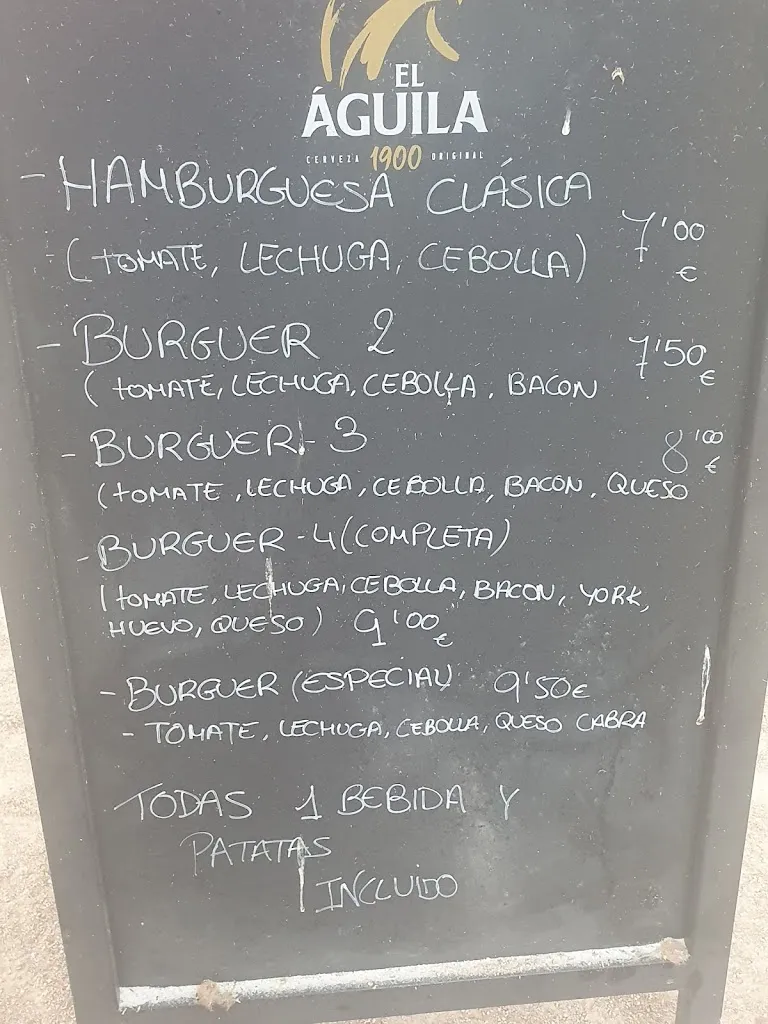 EL
ÁGUILA
CERVEZA 1900 ORIGINAL
- HAMBURGUESA CLÁSICA
(TOMATE, LECHUGA, CEBOLLA) 7'00 €
- BURGUER 2 7'50 €
(TOMATE, LECHUGA, CEBOLLA, BACON
- BURGUER - 3 8'00 €
(TOMATE, LECHUGA, CEBOLLA, BACON, QUESO
- BURGUER - 4 (COMPLETA)
(TOMATE, LECHUGA, CEBOLLA, BACON, YORK,
HUEVO, QUESO) 9'00 €
- BURGUER (ESPECIAL) 9'50€
- TOMATE, LECHUGA, CEBOLLA, QUESO CABRA
TODAS 1 BEBIDA Y
PATATAS
INCLUIDO